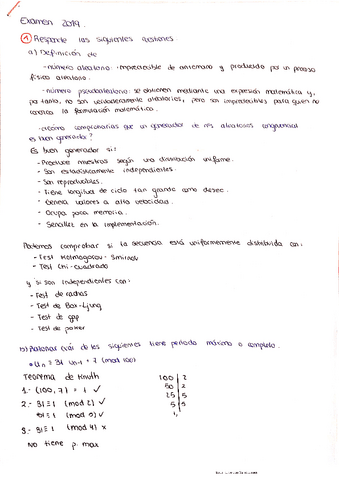 Examen 2019.
① Responde las siguientes cuestiones.
a) Definición de
- número aleatorio: impredecible de antemano y producido por un proceso
físico aleatorio.
- número pseudoaleatorio: se obtienen mediante una expresión matemática y,
por tanto, no son verdaderamente aleatorios, pero son impredecibles para quien no
conozca la formulación matemática.
- ¿cómo comprobarías que un generador de aleatorios congruencial
es buen generador?
Es buen generador si:
- Produce muestras según una distribución uniforme.
- Son estadísticamente independientes.
- Son reproducibles.
- Tiene longitud de ciclo tan grande como desee.
- Genera valores a alta velocidad.
- Ocupa poca memoria.
- Sencillez en la implementación.
Podemos comprobar si la secuencia está uniformemente distribuida con:
- Test Kolmogorov-Smirnov
- Test Chi-cuadrado
y si son independientes con:
- Test de rachas
- Test de Box-Ljung
- Test de gap
- Test de poker
b) Razonar cuál de los siguientes tiene periodo máximo o completo.
• Un = 31 Un-1 + 7 (mod 100)
Teorema de Knuth
1.- (100, 7) = 1 ✓
2.- 31 ≡ 1 (mod 2) ✓
31 ≡ 1 (mod 5) ✓
3.- 31 ≡ 1 (mod 4) x
NO tiene p. max
100 | 2
50 | 2
25 | 5
5 | 5
1